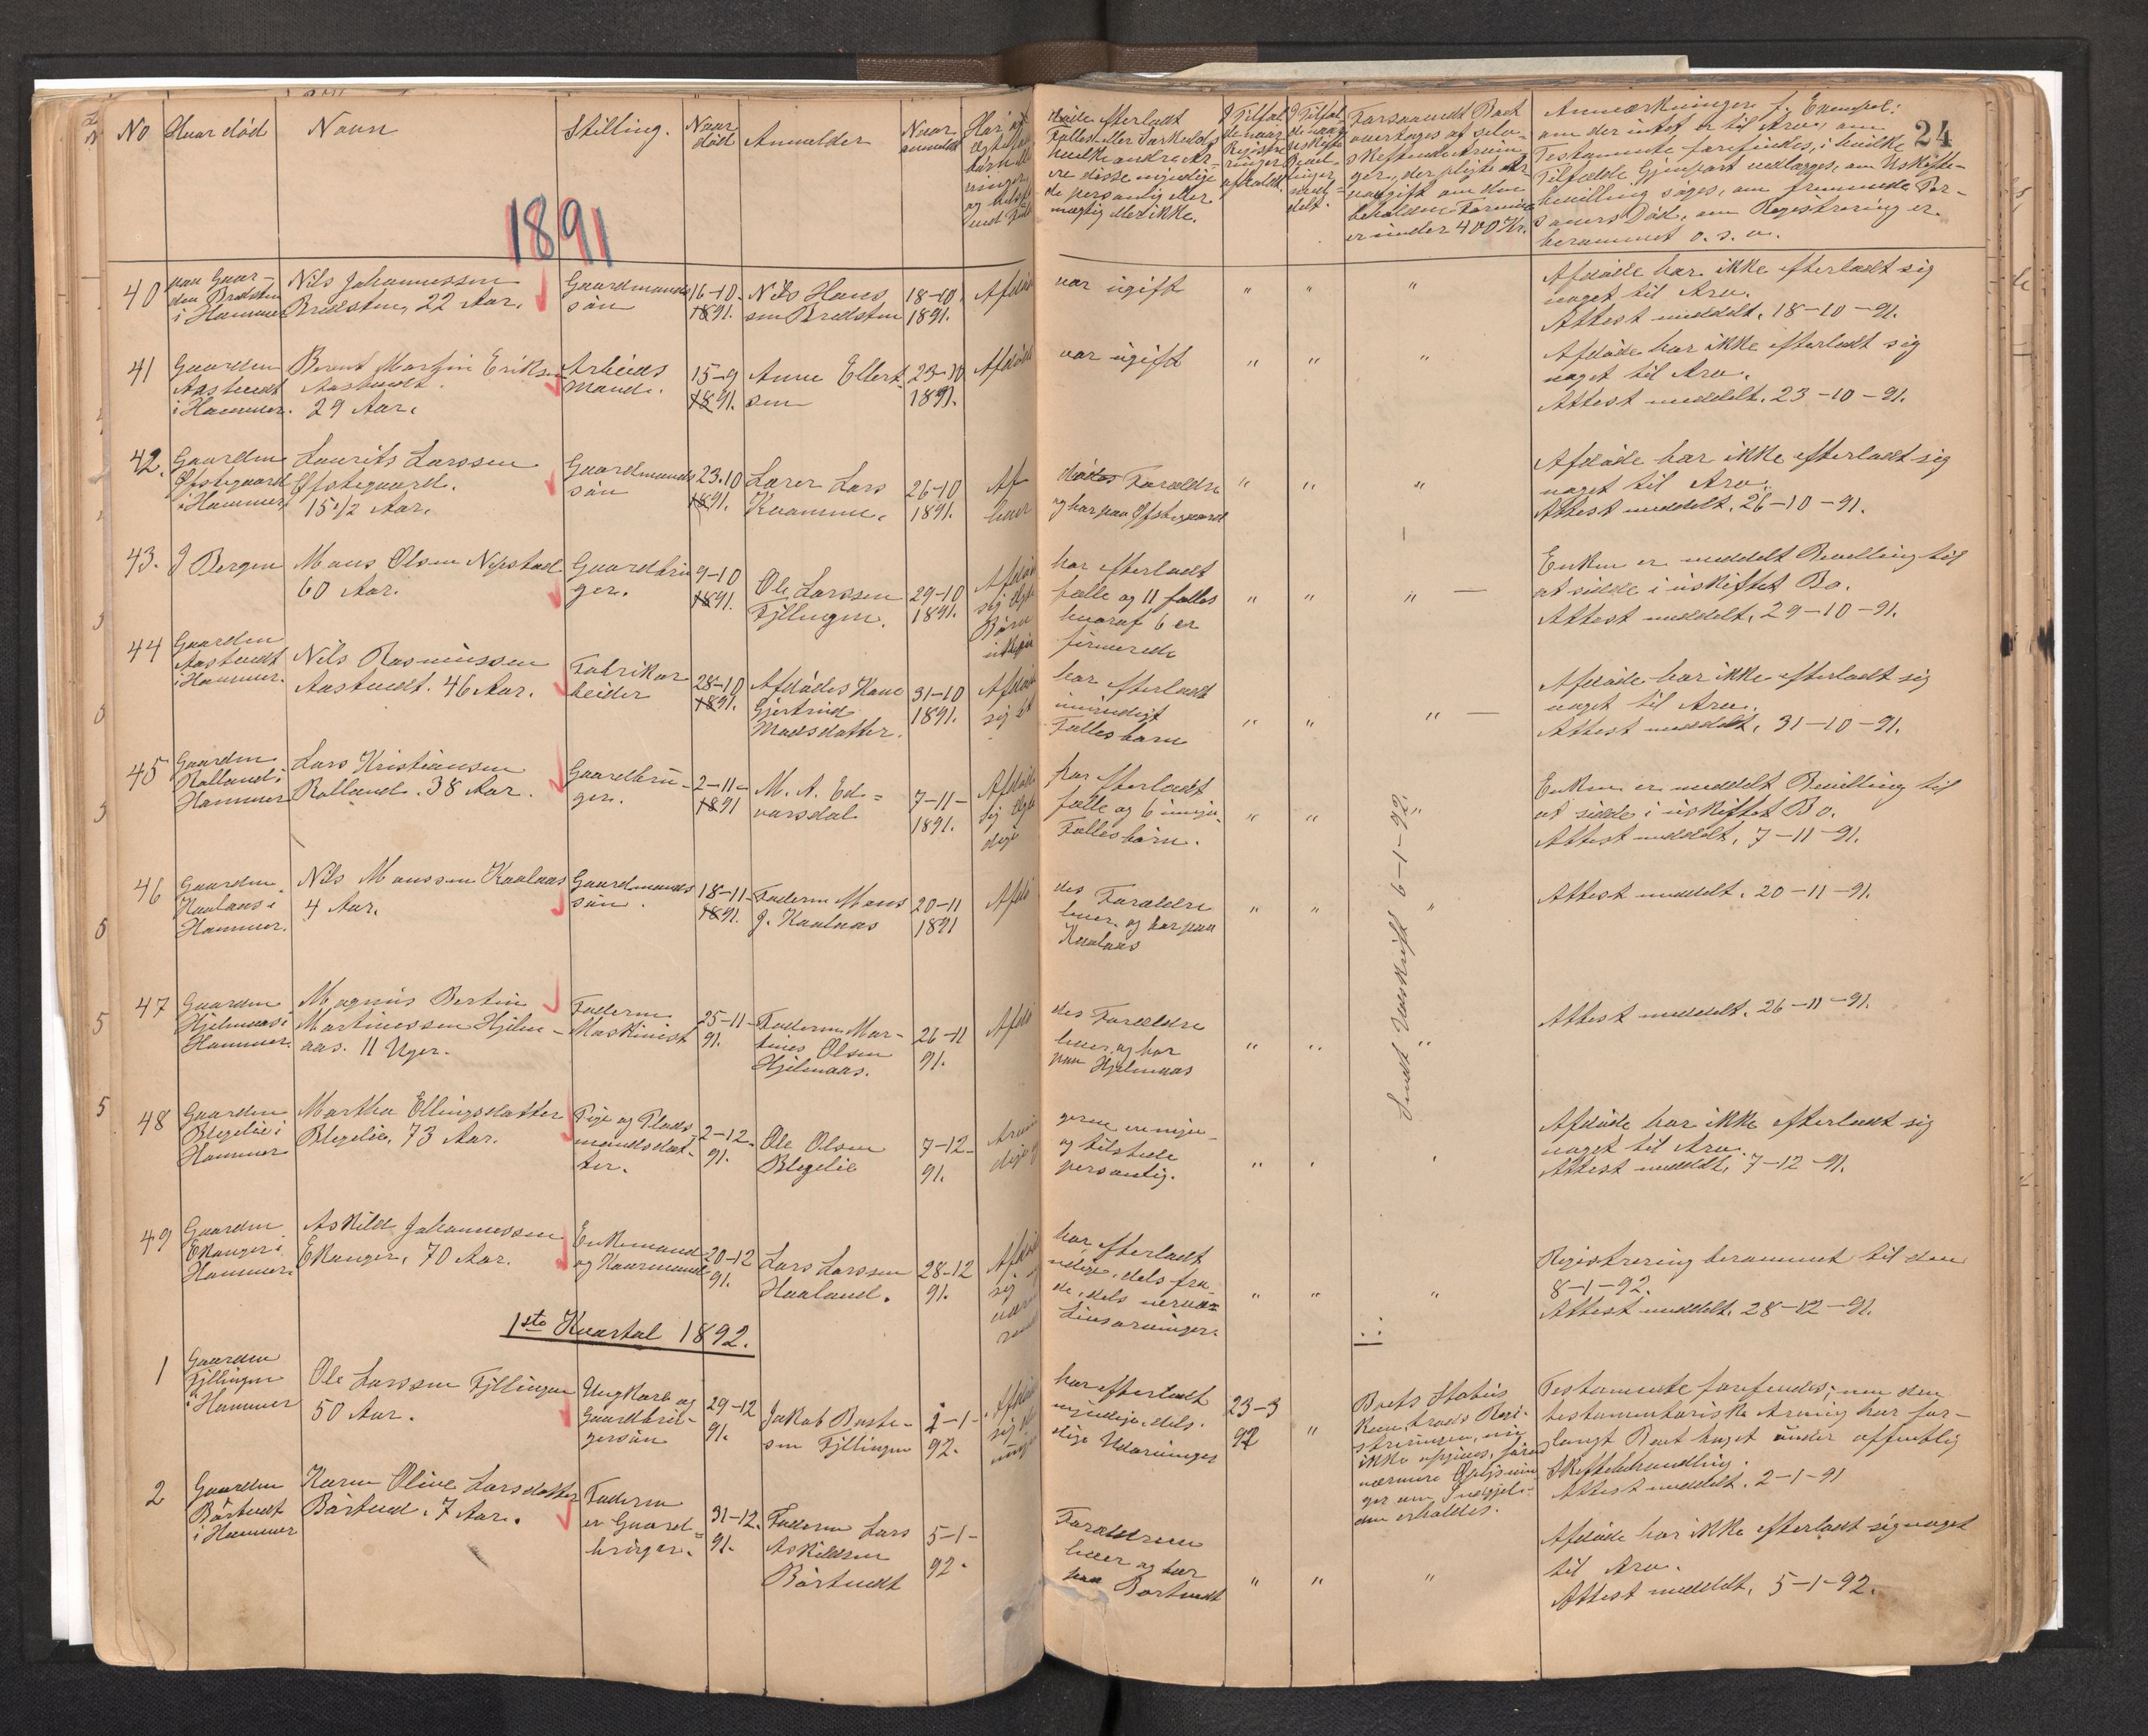 24
No
Hvor død
Navn
Stilling.
Naar
død
Anmelder
Naar
anmeldt
Har
døde efterladt
Fælles- eller Særkuldsb.
hvilke andre Ar-
ere disse myndige
de personlig eller
mægtig eller ikke.
I Tilfæl
de naar
Registre
ringen
afholdt.
I Tilfæl-
de naar
uskifte
Bevil-
linger
med-
delt.
Forsaavidt Boet
overtages af selv-
skiftende Arvin-
ger, der pligte Ar-
veafgift om den
beholdne Formue
er under 400 Kr.
Anmærkninger f. Exempel:
om der intet er til Arv, om
Testamente forefindes, i hvilke
Tilfælde Gjenpart vedlægges, om Uskifte-
bevilling søges, om fremmede Per-
soners Død, om Registrering er
berammet o. s. v.
1891
40
paa Gaar-
den Bredsten
i Hammer
Nils Johannessen
Bredsten, 22 Aar.
Gaardmands
søn
16-10.
1891.
Nils Hans
sen Bredsten
18-10.
1891.
Afdøde
var ugift
" " "
Afdøde har ikke efterladt sig
noget til Arv.
Attest meddelt. 18-10-91.
41
Gaarden
Aastvedt
i Hammer.
Berent Martin Eriksen
Aastvedt.
29 Aar.
Arbeids
mand.
15-9
1891.
Anne Ellert
sen
23-10
1891.
Afdøde
var ugift
" " "
Afdøde har ikke efterladt sig
noget til Arv.
Attest meddelt. 23-10-91.
42.
Gaarden
Øfstegaard
i Hammer
Laurits Larssen
Øfstegaard.
15 1/2 Aar.
Gaardmands
søn
23.10
1891.
Lærer Lars
Kvamme.
26-10
1891.
Af
lever
dødes Forældre
og bor paa Øfstegaard
" " "
Afdøde har ikke efterladt sig
noget til Arv.
Attest meddelt. 26-10-91.
43.
I Bergen
Mons Olsen Nepstad
60 Aar.
Gaardbru
ger.
9-10
1891.
Ole Larssen
Fjellingen.
29-10
1891.
Afdøde
sig Ægte
Børn
har efterladt
fælle og 11 fælles
hvoraf 6 er
" " " —
Enken er meddelt Bevilling til
at sidde i uskiftet Bo.
Attest meddelt. 29-10-91.
44
Gaarden
Aastvedt
i Hammer.
Nils Rasmussen
Aastvedt. 46 Aar.
Fabrikar
beider
28-10
1891.
Afdødes Kone
Gjertrud
Madsdatter.
31-10
1891.
Afdøde
sig et
har efterladt
umyndigt
Fællesbarn
" " " —
Afdøde har ikke efterladt sig
noget til Arv.
Attest meddelt. 31-10-91.
45
Gaarden
Rolland i
Hammer
Lars Kristiansen
Rolland. 38 Aar.
Gaardbru-
ger.
2-11-
1891
M. A. Ed=
varsdal
7-11-
1891.
Afdøde
sig Ægte
dige
har efterladt
fælle og 6 umyn-
Fællesbørn.
" " "
Enken er meddelt Bevilling til
at sidde i uskiftet Bo.
Attest meddelt. 7-11-91.
46
Gaarden
Kaalaas i
Hammer.
Nils Monssen Kaalaas
4 Aar.
Gaardmands
søn.
18-11-
1891.
Faderen Mons
J. Kaalaas
20-11
1891
Afdø
des Forældre
lever og bor paa
Kaalaas
" " "
Attest meddelt. 20-11-91.
Sendt Udskrift 6-1-92.
47
Gaarden
Hjelmaas i
Hammer.
Magnus Bertin
Martinussen Hjelm-
aas. 11 Uger.
Faderen
Maskinist
25-11-
91.
Faderen Mar-
tines Olsen
Hjelmaas.
26-11
91.
Afdø
des Forældre
lever og bor
paa Hjelmaas
" " "
Attest meddelt. 26-11-91.
48
Gaarden
Blegelie i
Hammer
Martha Ellingsdatter
Blegelie, 73 Aar.
Pige og Plads
mandsdat-
ter.
2-12-
91.
Ole Olsen
Blegelie
7-12-
91.
Arvin
dige og
gerne ere myn-
og tilstede
personlig.
" " "
Afdøde har ikke efterladt sig
noget til Arv.
Attest meddelt. 7-12-91.
49
Gaarden
Ekanger i
Hammer.
Askild Johannessen
Ekanger, 70 Aar.
Enkemand
og Kaarmand
20-12
91.
Lars Larssen
Haaland.
28-12
91.
Afdøde
sig
har efterladt
ndige, dels fra-
de, dels nærvæ=
Livsarvinger.
" " "
Registrering berammet til den
8-1-92.
Attest meddelt. 28-12-91.
1ste Kvartal 1892.
1
Gaarden
Fjellingen
i Hammer
Ole Larssen Fjellingen
50 Aar.
Ungkarl og
Gaardbru-
gersøn
29-12
91.
Jakob Baste-
sen Fjellingen
2-1-
92.
Afdøde
sig
har efterladt
myndige, dels.
dige Udarvinger
23-3
92
"
Boets Status
kan, trods Regi-
streringen, nu
ikke opgives, før
nærmere Oplysnin
ger om Indgjel-
den erholdes.
Testamente forefindes; men den
testamentariske Arving har for-
langt Boet taget under offentlig
Skiftebehandling.
Attest meddelt. 2-1-91
2
Gaarden
Børtvedt
i Hammer
Karen Oline Larsdatter
Børtved. 7 Aar.
Faderen
er Gaard=
bruger.
31-12.
91.
Faderen Lars
Askildsen
Børtvedt
5-1-
92.
Forældrene
lever og bor
paa Børtvedt
" " "
Afdøde har ikke efterladt sig noget
til Arv.
Attest meddelt. 5-1-92.